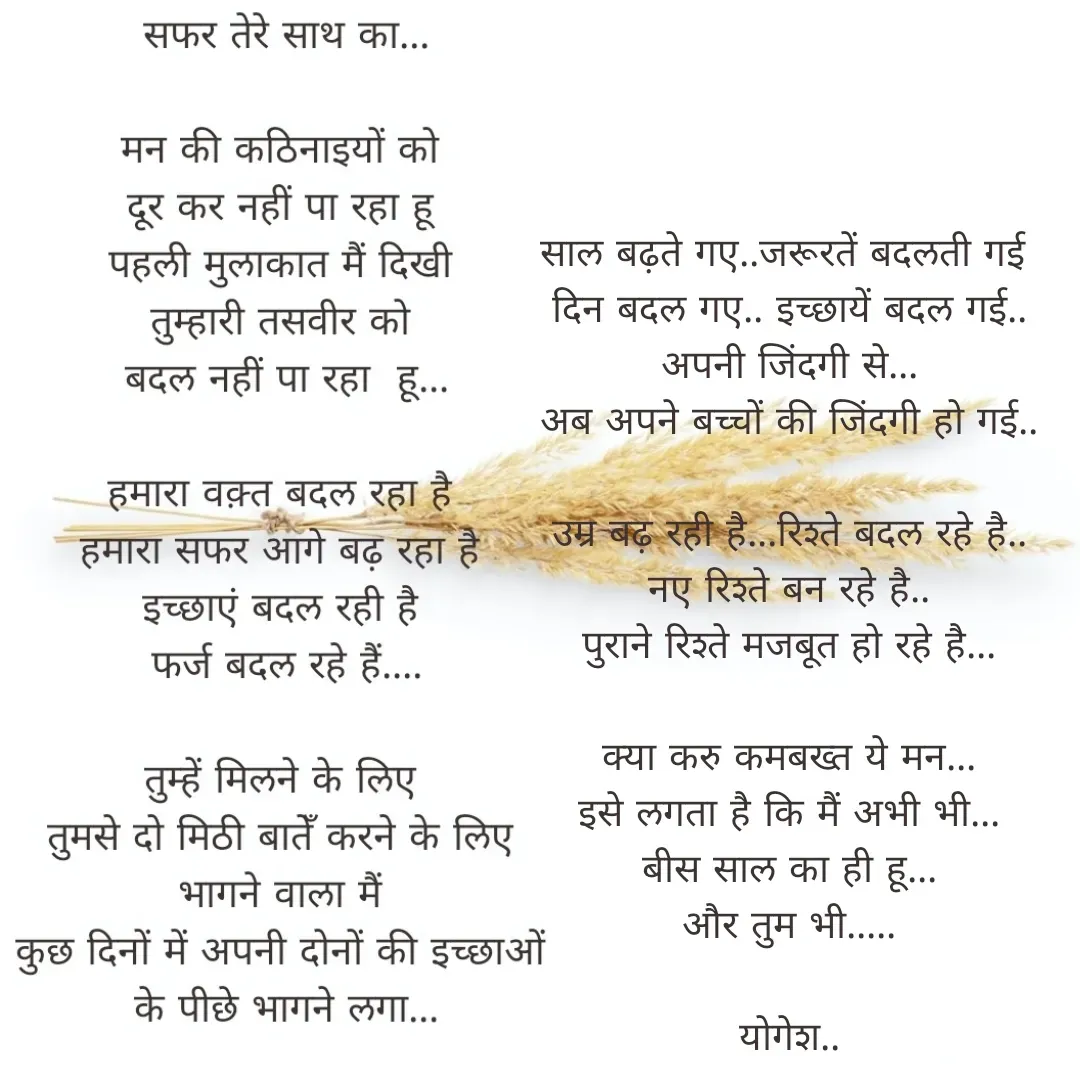 सफर तेरे साथ का...
मन की कठिनाइयों को
दूर कर नहीं पा रहा हू
पहली मुलाकात मैं दिखी
तुम्हारी तसवीर को
बदल नहीं पा रहा हू...
हमारा वक़्त बदल रहा है
हमारा सफर आगे बढ़ रहा है
इच्छाएं बदल रही है
फर्ज बदल रहे हैं....
तुम्हें मिलने के लिए
तुमसे दो मिठी बातेँ करने के लिए
भागने वाला मैं
कुछ दिनों में अपनी दोनों की इच्छाओं
के पीछे भागने लगा...
साल बढ़ते गए..जरूरतें बदलती गई
दिन बदल गए.. इच्छायें बदल गई..
अपनी जिंदगी से...
अब अपने बच्चों की जिंदगी हो गई..
उम्र बढ़ रही है...रिश्ते बदल रहे है..
नए रिश्ते बन रहे है..
पुराने रिश्ते मजबूत हो रहे है...
क्या करु कमबख्त ये मन...
इसे लगता है कि मैं अभी भी...
बीस साल का ही हू...
और तुम भी.....
योगेश..